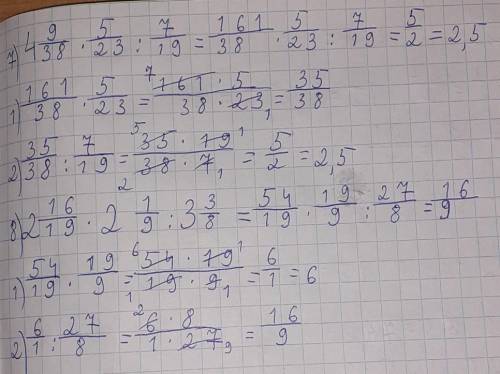 7) 4 9/38 · 5/23 : 7/19 = 161/38 · 5/23 : 7/19 = 5/2 = 2,5
1) 161/38 · 5/23 = 7 161 · 5 / 38 · 23 1 = 35/38
2) 35/38 : 7/19 = 5 35 · 19 1 / 2 38 · 7 1 = 5/2 = 2,5
8) 2 16/19 · 2 1/9 : 3 3/8 = 54/19 · 19/9 : 27/8 = 16/9
1) 54/19 · 19/9 = 6 54 · 19 1 / 1 19 · 9 1 = 6/1 = 6
2) 6/1 : 27/8 = 2 6 · 8 / 1 · 27 9 = 16/9